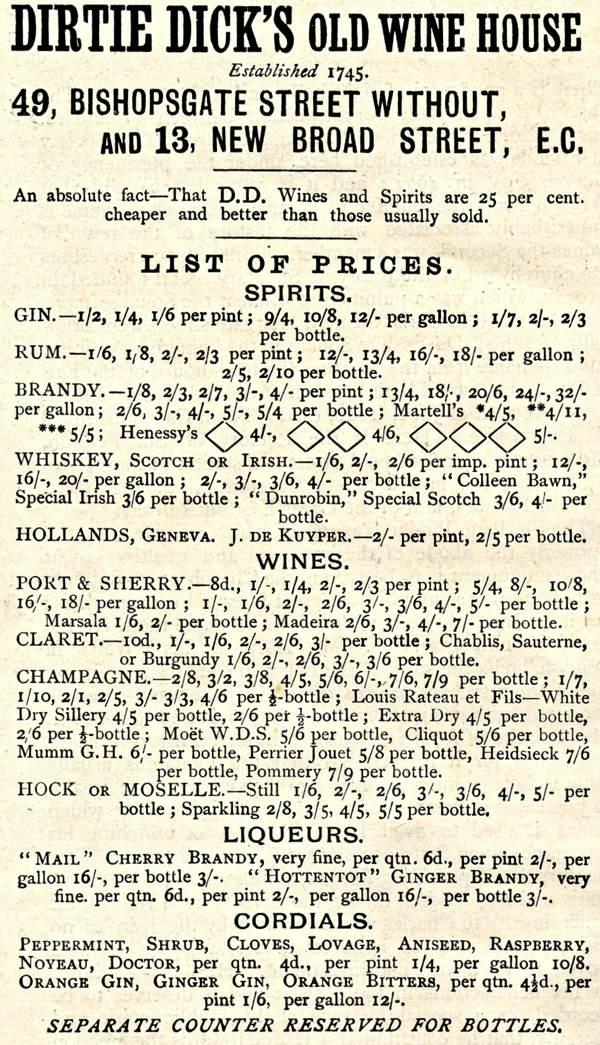 DIRTIE DICK'S OLD WINE HOUSE
Established 1745.
49, BISHOPSGATE STREET WITHOUT,
AND 13, NEW BROAD STREET, E.C.
An absolute fact—That D.D. Wines and Spirits are 25 per cent.
cheaper and better than those usually sold.
LIST OF PRICES.
SPIRITS.
GIN.—1/2, 1/4, 1/6 per pint; 9/4, 10/8, 12/- per gallon; 1/7, 2/-, 2/3
per bottle.
RUM.—1/6, 1/8, 2/-, 2/3 per pint; 12/-, 13/4, 16/-, 18/- per gallon;
2/5, 2/10 per bottle.
BRANDY.—1/8, 2/3, 2/7, 3/-, 4/- per pint; 13/4, 18/-, 20/6, 24/-, 32/-
per gallon; 2/6, 3/-, 4/-, 5/-, 5/4 per bottle; Martell's *4/5, **4/11,
*** 5/5; Henessy's ◇ 4/-, ◇◇ 4/6, ◇◇◇ 5/-.
WHISKEY, SCOTCH OR IRISH.—1/6, 2/-, 2/6 per imp. pint; 12/-,
16/-, 20/- per gallon; 2/-, 3/-, 3/6, 4/- per bottle; "Colleen Bawn,"
Special Irish 3/6 per bottle; "Dunrobin," Special Scotch 3/6, 4/- per
bottle.
HOLLANDS, GENEVA. J. DE KUYPER.—2/- per pint, 2/5 per bottle.
WINES.
PORT & SHERRY.—8d., 1/-, 1/4, 2/-, 2/3 per pint; 5/4, 8/-, 10/8,
16/-, 18/- per gallon; 1/-, 1/6, 2/-, 2/6, 3/-, 3/6, 4/-, 5/- per bottle;
Marsala 1/6, 2/- per bottle; Madeira 2/6, 3/-, 4/-, 7/- per bottle.
CLARET.—10d., 1/-, 1/6, 2/-, 2/6, 3/- per bottle; Chablis, Sauterne,
or Burgundy 1/6, 2/-, 2/6, 3/-, 3/6 per bottle.
CHAMPAGNE.—2/8, 3/2, 3/8, 4/5, 5/6, 6/-, 7/6, 7/9 per bottle; 1/7,
1/10, 2/1, 2/5, 3/- 3/3, 4/6 per ½-bottle; Louis Rateau et Fils—White
Dry Sillery 4/5 per bottle, 2/6 per ½-bottle; Extra Dry 4/5 per bottle,
2/6 per ½-bottle; Moët W.D.S. 5/6 per bottle, Cliquot 5/6 per bottle,
Mumm G.H. 6/- per bottle, Perrier Jouet 5/8 per bottle, Heidsieck 7/6
per bottle, Pommery 7/9 per bottle.
HOCK OR MOSELLE.—Still 1/6, 2/-, 2/6, 3/-, 3/6, 4/-, 5/- per
bottle; Sparkling 2/8, 3/5, 4/5, 5/5 per bottle.
LIQUEURS.
"MAIL" CHERRY BRANDY, very fine, per qtn. 6d., per pint 2/-, per
gallon 16/-, per bottle 3/-. "HOTTENTOT" GINGER BRANDY, very
fine. per qtn. 6d., per pint 2/-, per gallon 16/-, per bottle 3/-.
CORDIALS.
PEPPERMINT, SHRUB, CLOVES, LOVAGE, ANISEED, RASPBERRY,
NOYEAU, DOCTOR, per qtn. 4d., per pint 1/4, per gallon 10/8.
ORANGE GIN, GINGER GIN, ORANGE BITTERS, per qtn. 4½d., per
pint 1/6, per gallon 12/-.
SEPARATE COUNTER RESERVED FOR BOTTLES.